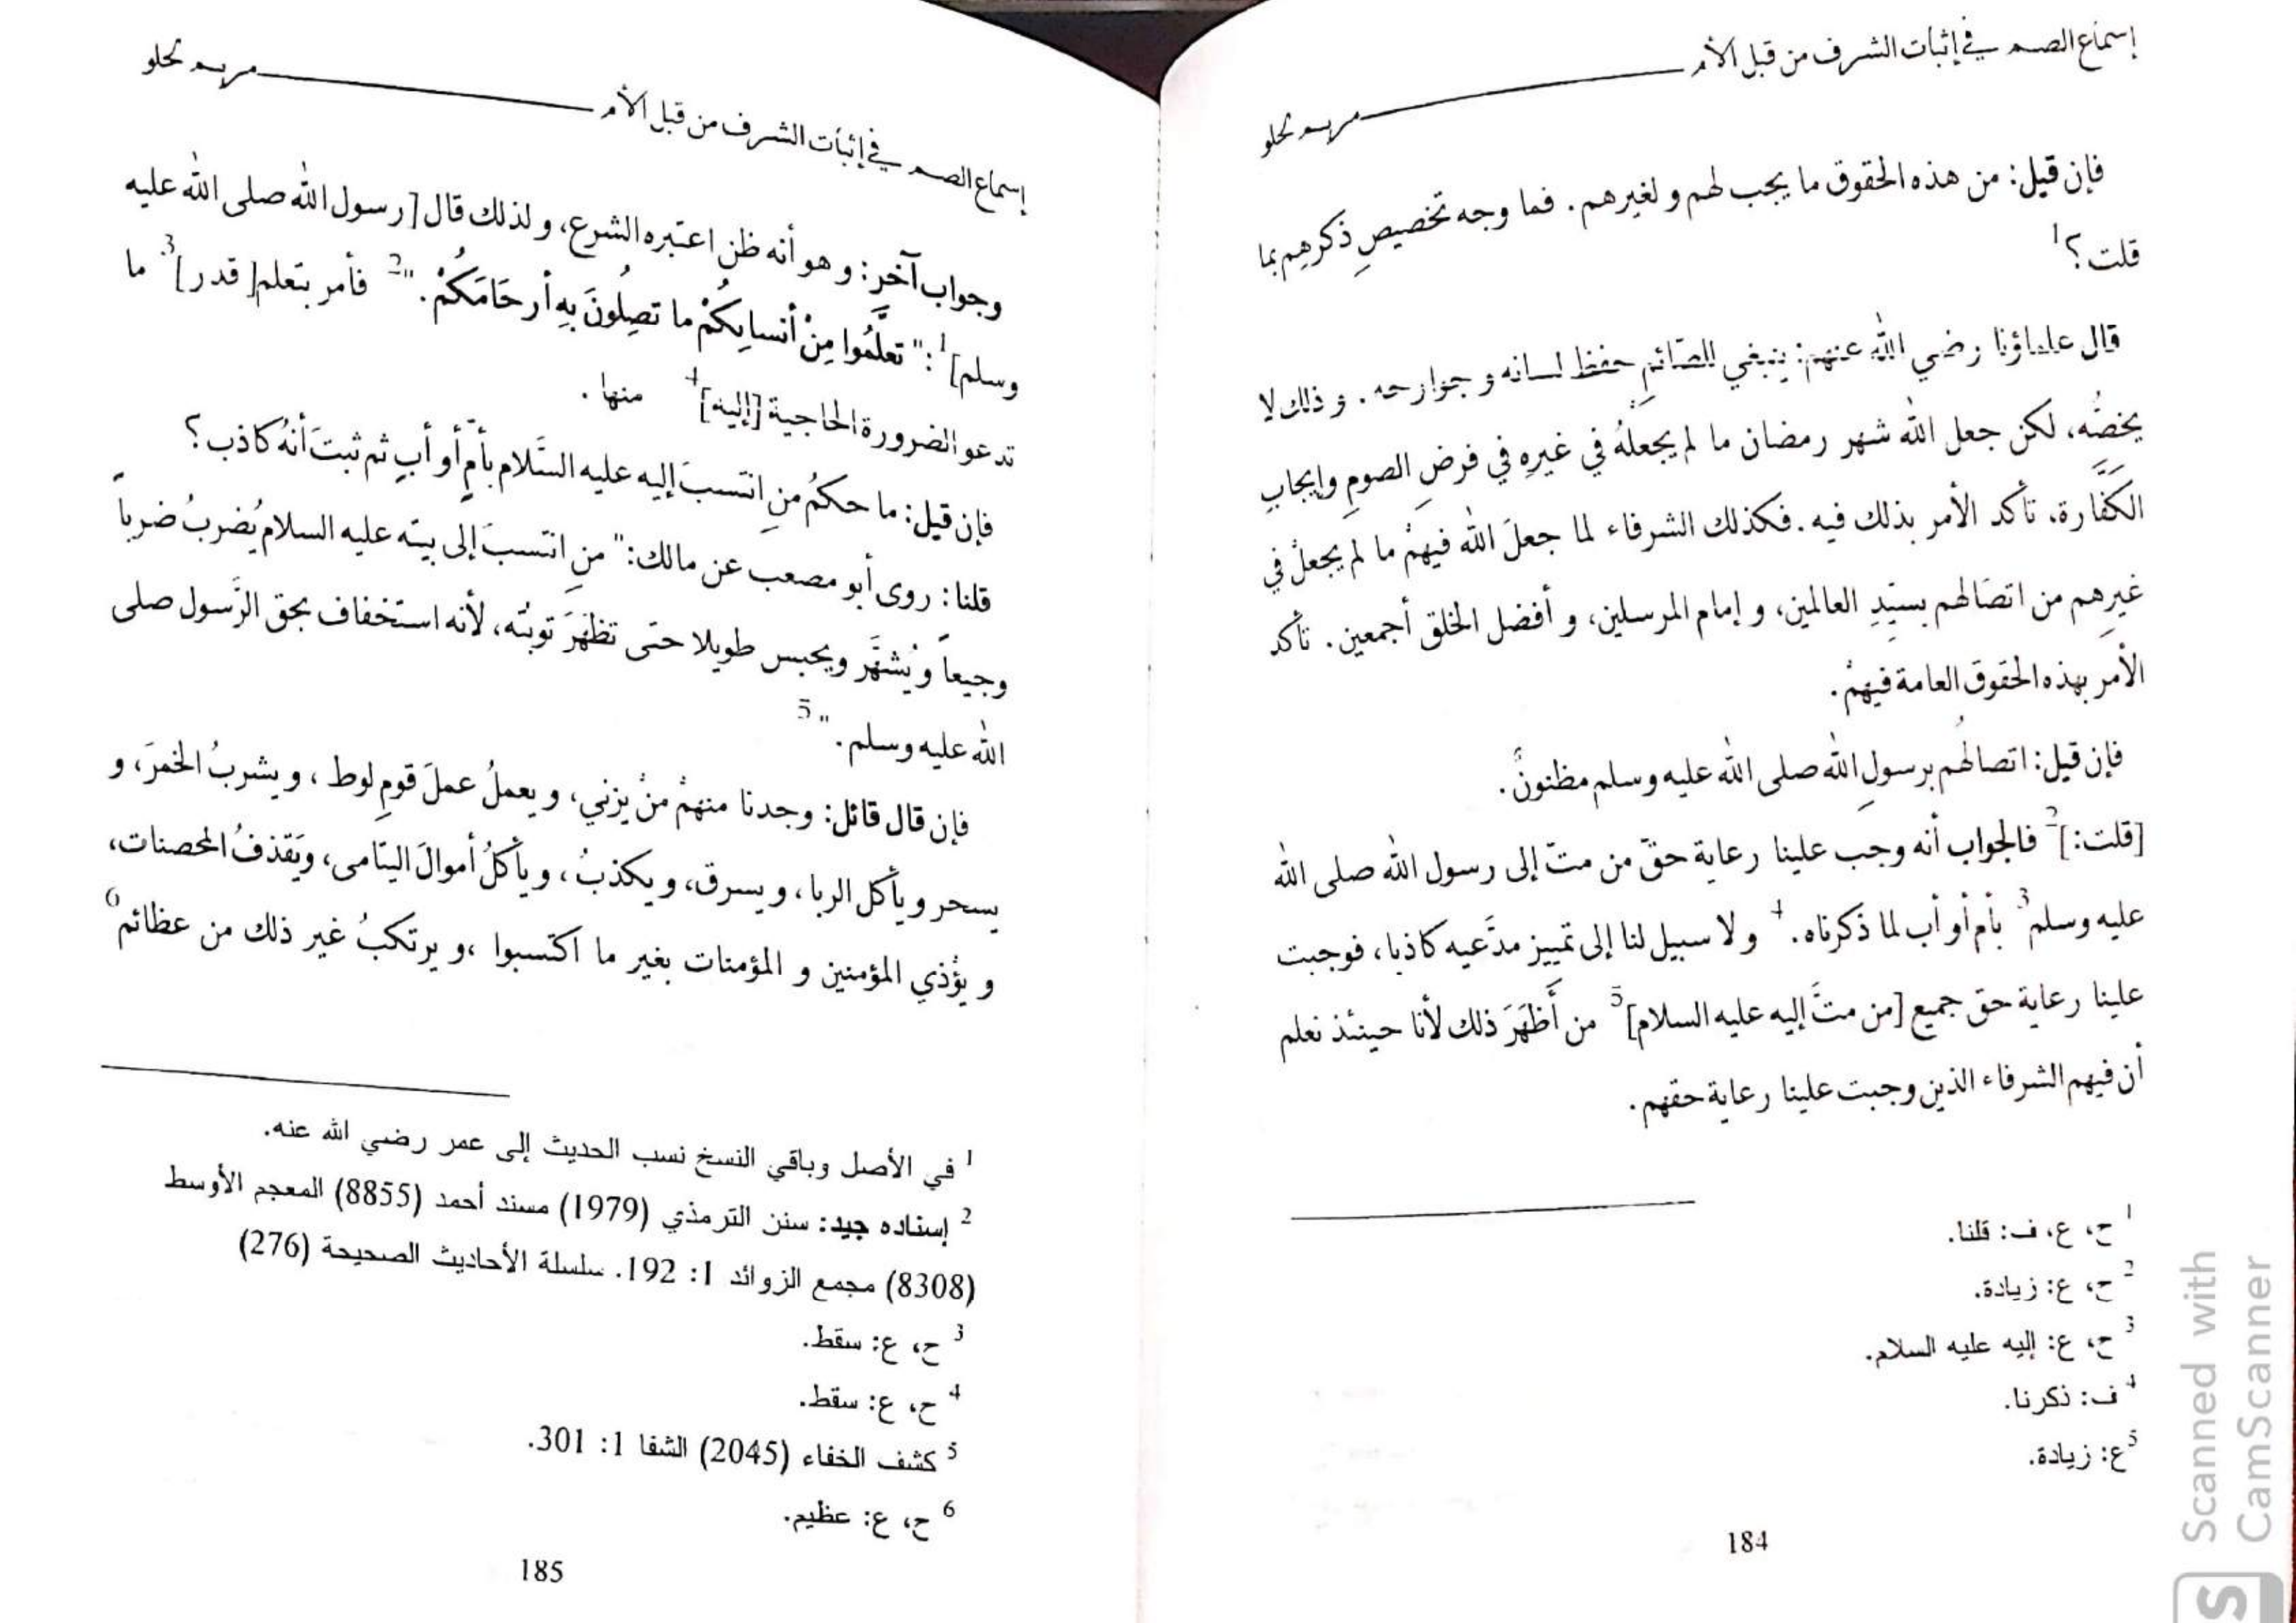 إسماع الصم في إثبات الشرف من قبل الأم
مريم لحلو
فإن قيل: من هذه الحقوق ما يجب لهم و لغيرهم. فما وجه تخصيصِ ذكرهِم بما
قلت؟1
قال علماؤنا رضي الله عنهم: ينبغي للصّائمِ حفظ لسانه و جوارحه. و ذلك لا
يخصُّه، لكن جعل الله شهر رمضان ما لم يجعلهُ في غيرِهِ في فرضِ الصومِ وإيجابِ
الكفَّارة، تأكد الأمر بذلك فيه. فكذلك الشرفاء لما جعلَ الله فيهمْ ما لم يجعلْ في
غيرِهم من اتصَالهم بسيّدِ العالمين، و إمام المرسلين، و أفضل الخلق أجمعين. تأكد
الأمر بهذه الحقوق العامة فيهمْ.
فإن قيل: اتصالهُم برسولِ الله صلى الله عليه وسلم مظنونٌ.
[قلت:]2 فالجواب أنه وجب علينا رعاية حقّ من متّ إلى رسول الله صلى الله
عليه وسلم3 بأم أو أب لما ذكرناه.4 و لا سبيل لنا إلى تمييز مدَّعيه كاذبا، فوجبت
علينا رعاية حق جميع [من متَّ إليه عليه السلام]5 من أَظهَرَ ذلك لأنا حينئذ نعلم
أن فيهم الشرفاء الذين وجبت علينا رعاية حقهم.
1 ح، ع، ف: قلنا.
2 ح، ع: زيادة.
3 ح، ع: إليه عليه السلام.
4 ف: ذكرنا.
5 ع: زيادة.
184
إسماع الصم في إثبات الشرف من قبل الأم
مريم لحلو
وجواب آخر: و هو أنه ظن اعتبره الشرع، و لذلك قال [رسول الله صلى الله عليه
وسلم]1: "تعلَّمُوا مِنْ أنسابِكُمْ ما تصِلُونَ بِهِ أرحَامَكُمْ."2 فأمر بتعلم [قدر]3 ما
تدعو الضرورة الحاجية [إليه]4 منها.
فإن قيل: ما حكمُ منِ انتسبَ إليه عليه السَّلام بأمٍّ أو أبٍ ثم ثبتَ أنهُ كاذب؟
قلنا: روى أبو مصعب عن مالك: "منِ انتسبَ إلى بيته عليه السلام يُضربُ ضرباً
وجيعاً و يُشهَّر ويحبس طويلا حتى تظهَرَ توبتُه، لأنه استخفاف بحق الرَّسول صلى
الله عليه وسلم."5
فإن قال قائل: وجدنا منهمْ منْ يزني، و يعملُ عملَ قومِ لوط، و يشربُ الخمرَ، و
يسحر و يأكل الربا، و يسرق، و يكذبُ، و يأكلُ أموالَ اليتامى، ويَقذفُ المحصنات،
و يؤذي المؤمنين و المؤمنات بغير ما اكتسبوا ،و يرتكبُ غير ذلك من عظائم6
1 في الأصل وباقي النسخ نسب الحديث إلى عمر رضي الله عنه.
2 إسناده جيد: سنن الترمذي (1979) مسند أحمد (8855) المعجم الأوسط
(8308) مجمع الزوائد 1: 192. سلسلة الأحاديث الصحيحة (276)
3 ح، ع: سقط.
4 ح، ع: سقط.
5 كشف الخفاء (2045) الشفا 1: 301.
6 ح، ع: عظيم.
185
Scanned with
CamScanner